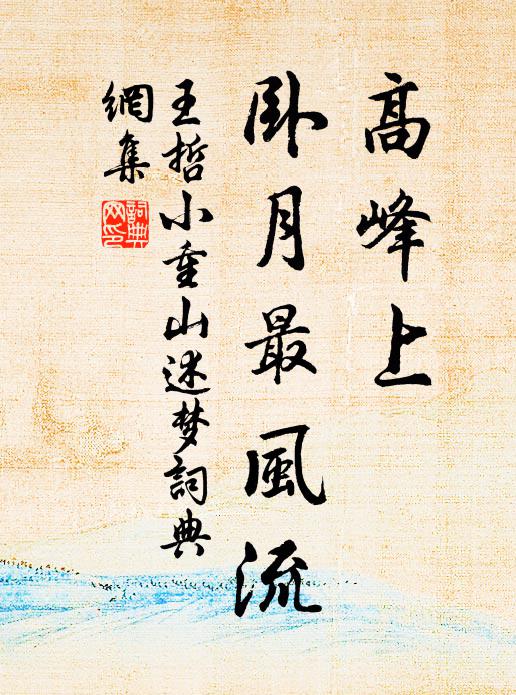 高峰上
卧月最風流
王哲小重山述梦詞典
網集
詞典
网印